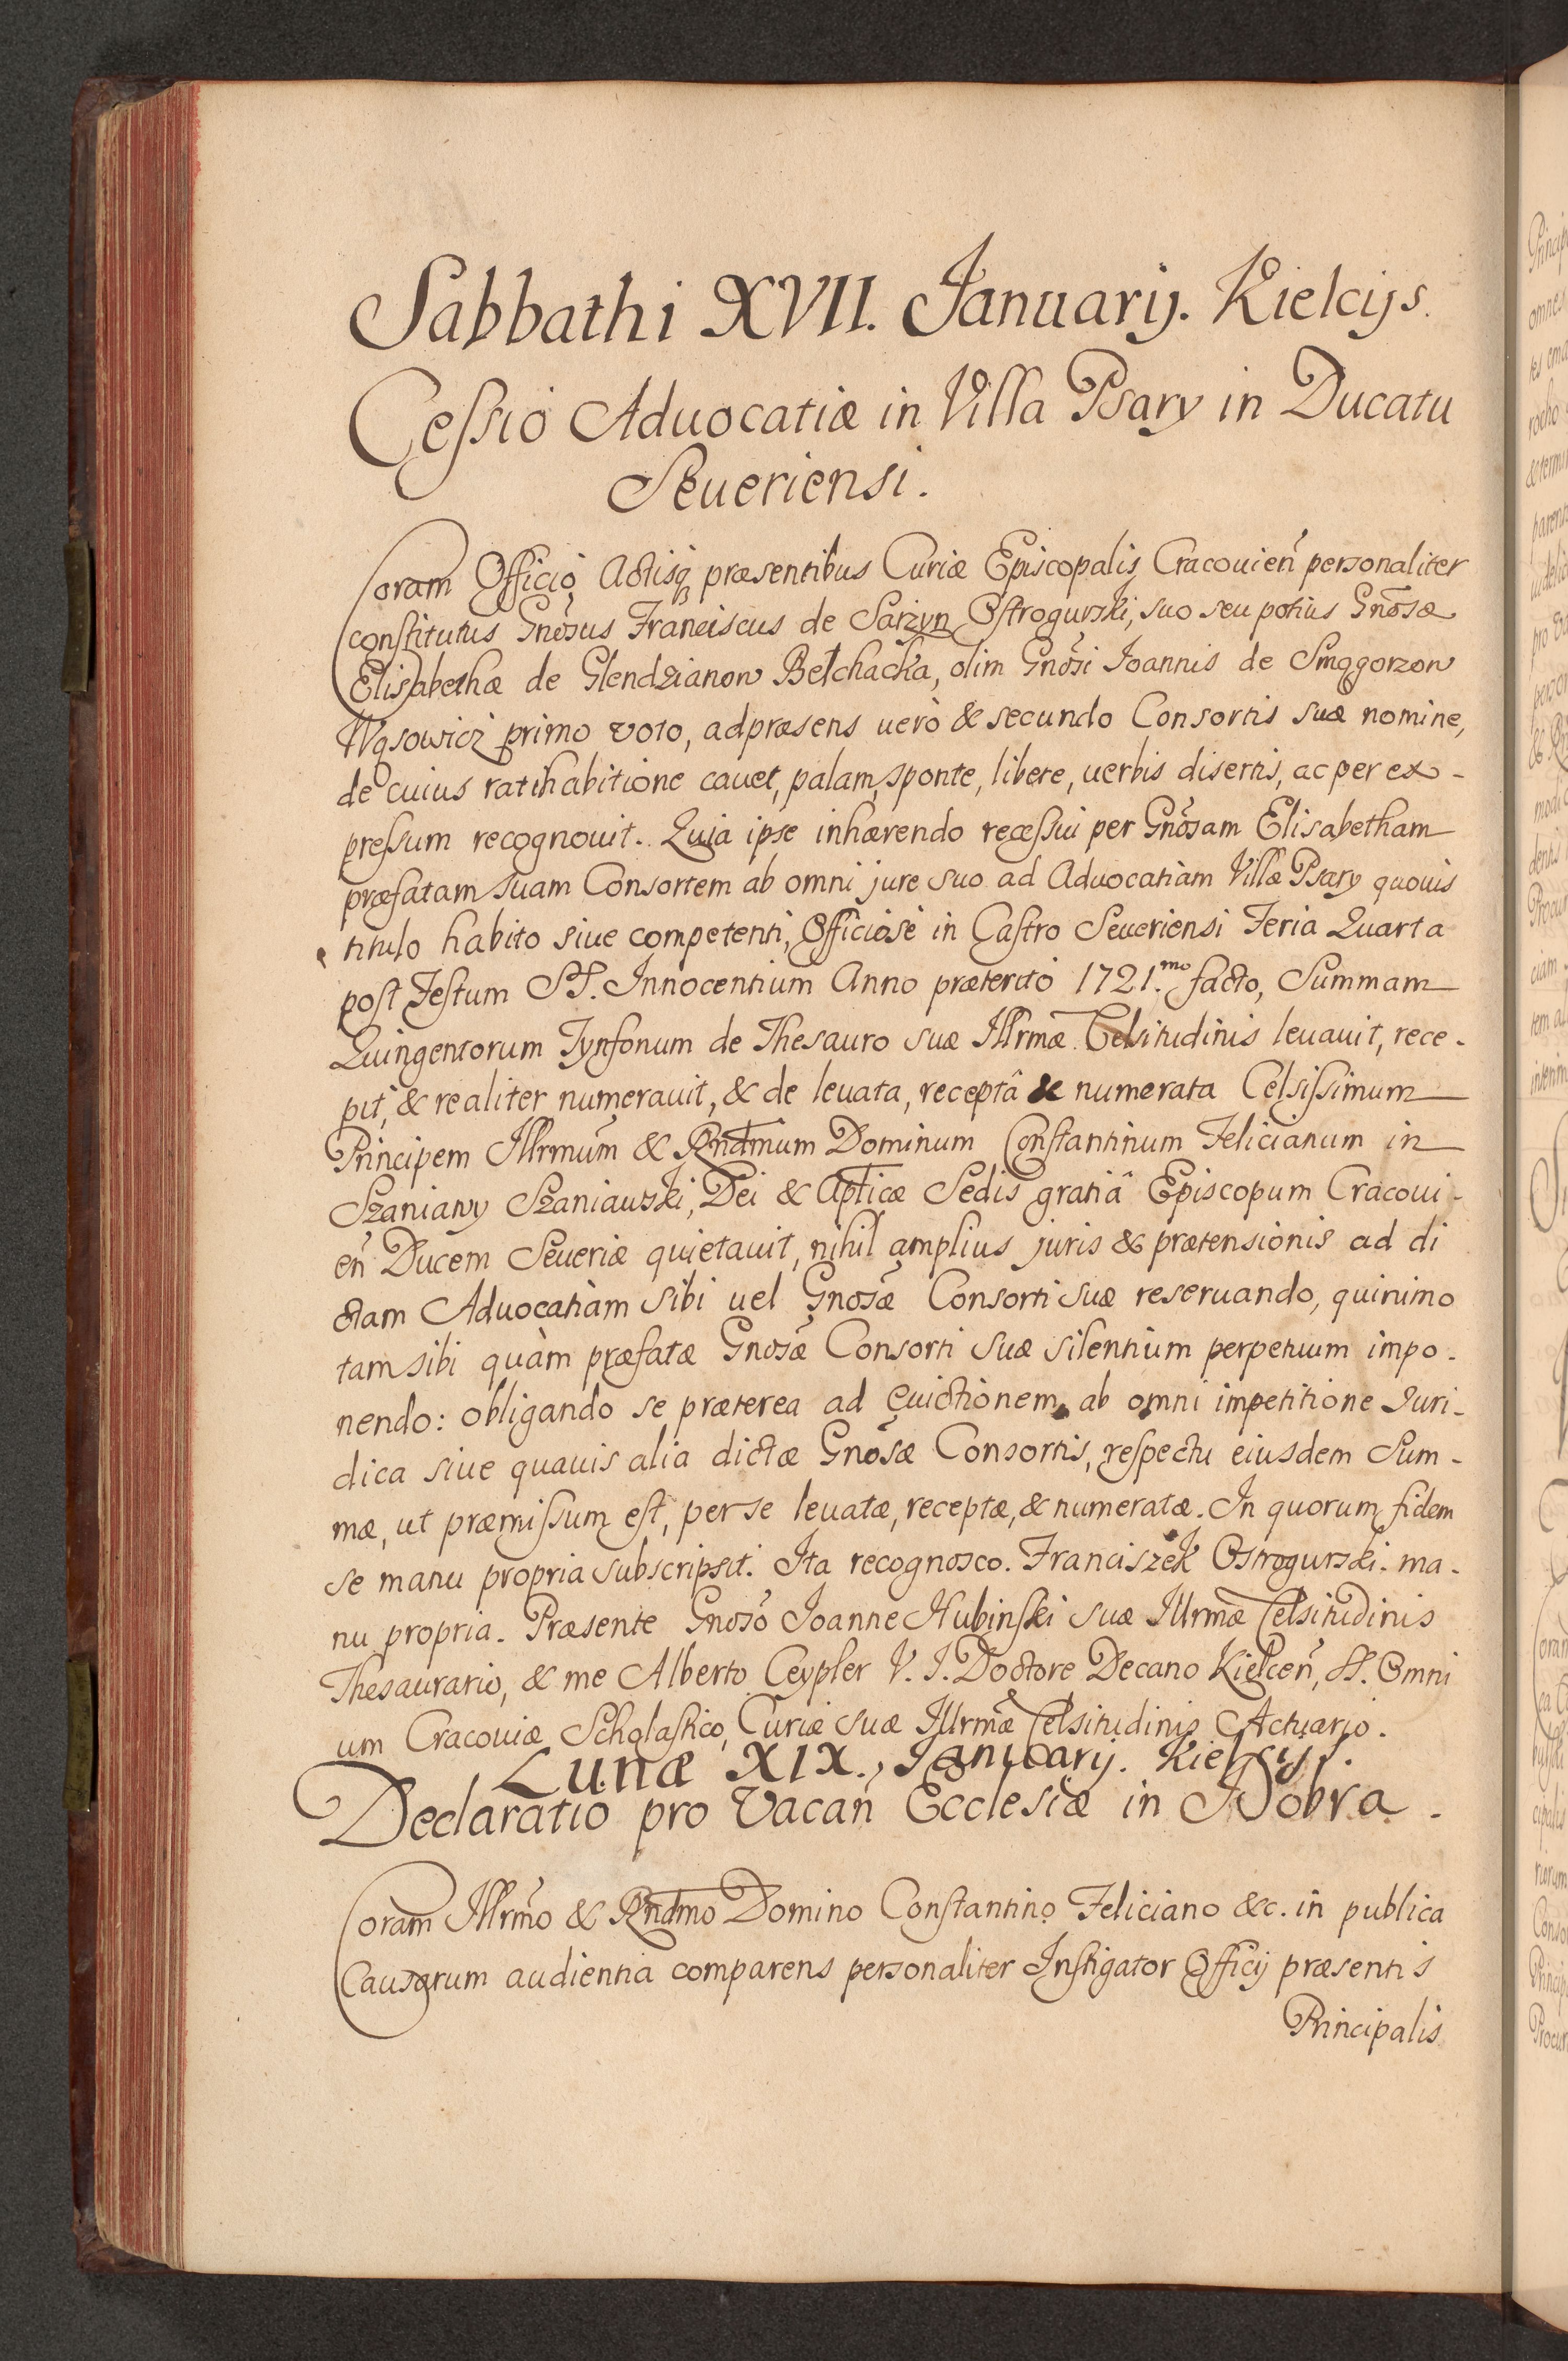 Sabbathi XVII. Januarij. Kielcijs.
Cessio Aduocatiæ in Villa Psary in Ducatu
Seueriensi.
Coram Officio, Actisq₃ præsentibus Curiæ Episcopalis Cracouien̄ personaliter
constitutus Gnōsus Franciscus de Sarzyn Ostrogurski, suo seu potius Gnōsæ
Elisabethæ de Glendzianow Bełchacka, olim Gnōsi Joannis de Smogorzow
Wąsowicz primo voto, ad præsens uerò & secundo Consortis suæ nomine,
de cuius ratihabitione cauet, palam, sponte, libere, uerbis disertis, ac per ex-
pressum recognouit. Quia ipse inhærendo recessui per Gnōsam Elisabetham
præfatam suam Consortem ab omni jure suo ad Aduocatiam Villæ Psary quouis
titulo habito siue competenti, Officiose in Castro Seueriensi Feria Quarta
post Festum SS. Innocentium Anno præterito 1721.mo facto, Summam
Quingentorum Tynfonum de Thesauro suæ Illrmæ Celsitudinis leuauit, rece-
pit, & realiter numerauit, & de leuata, receptâ & numerata Celsissimum
Principem Illrmūm & Rndmum Dominum Constantinum Felicianum in
Szaniawy Szaniawski, Dei & Aplicæ Sedis gratiâ Episcopum Cracoui-
en̄ Ducem Seueriæ quietauit, nihil amplius juris & prætensionis ad di
ctam Aduocatiam sibi uel Gnosǣ Consorti suæ reseruando, quinimo
tam sibi quàm præfatæ Gnosǣ Consorti suæ silentium perpetuum impo-
nendo: obligando se præterea ad euictionem ab omni impetitione Iuri-
dica siue quauis alia dictæ Gnōsæ Consortis, respectu eiusdem Sum-
mæ, ut præmissum est, per se leuatæ, receptæ, & numeratæ. In quorum fidem
se manu propria subscripsit. Ita recognosco. Franciszek Ostrogurski. ma-
nu propria. Præsente Gnosō Joanne Hubinski suæ Illrmæ Celsitudinis
Thesaurario, & me Alberto Ceypler V. J. Doctore Decano Kielcen̄, SS. Omni
um Cracouiæ Scholastico, Curiæ suæ Illrmæ Celsitudinis Actuario.
Lunæ XIX. Januarij. Kielcijs.
Declaratio pro Vacan̄ Ecclesiæ in Dobra.
Coram Illrmo & Rndmo Domino Constantino Feliciano &c. in publica
Causarum audientia comparens personaliter Instigator Officij præsentis
Principalis